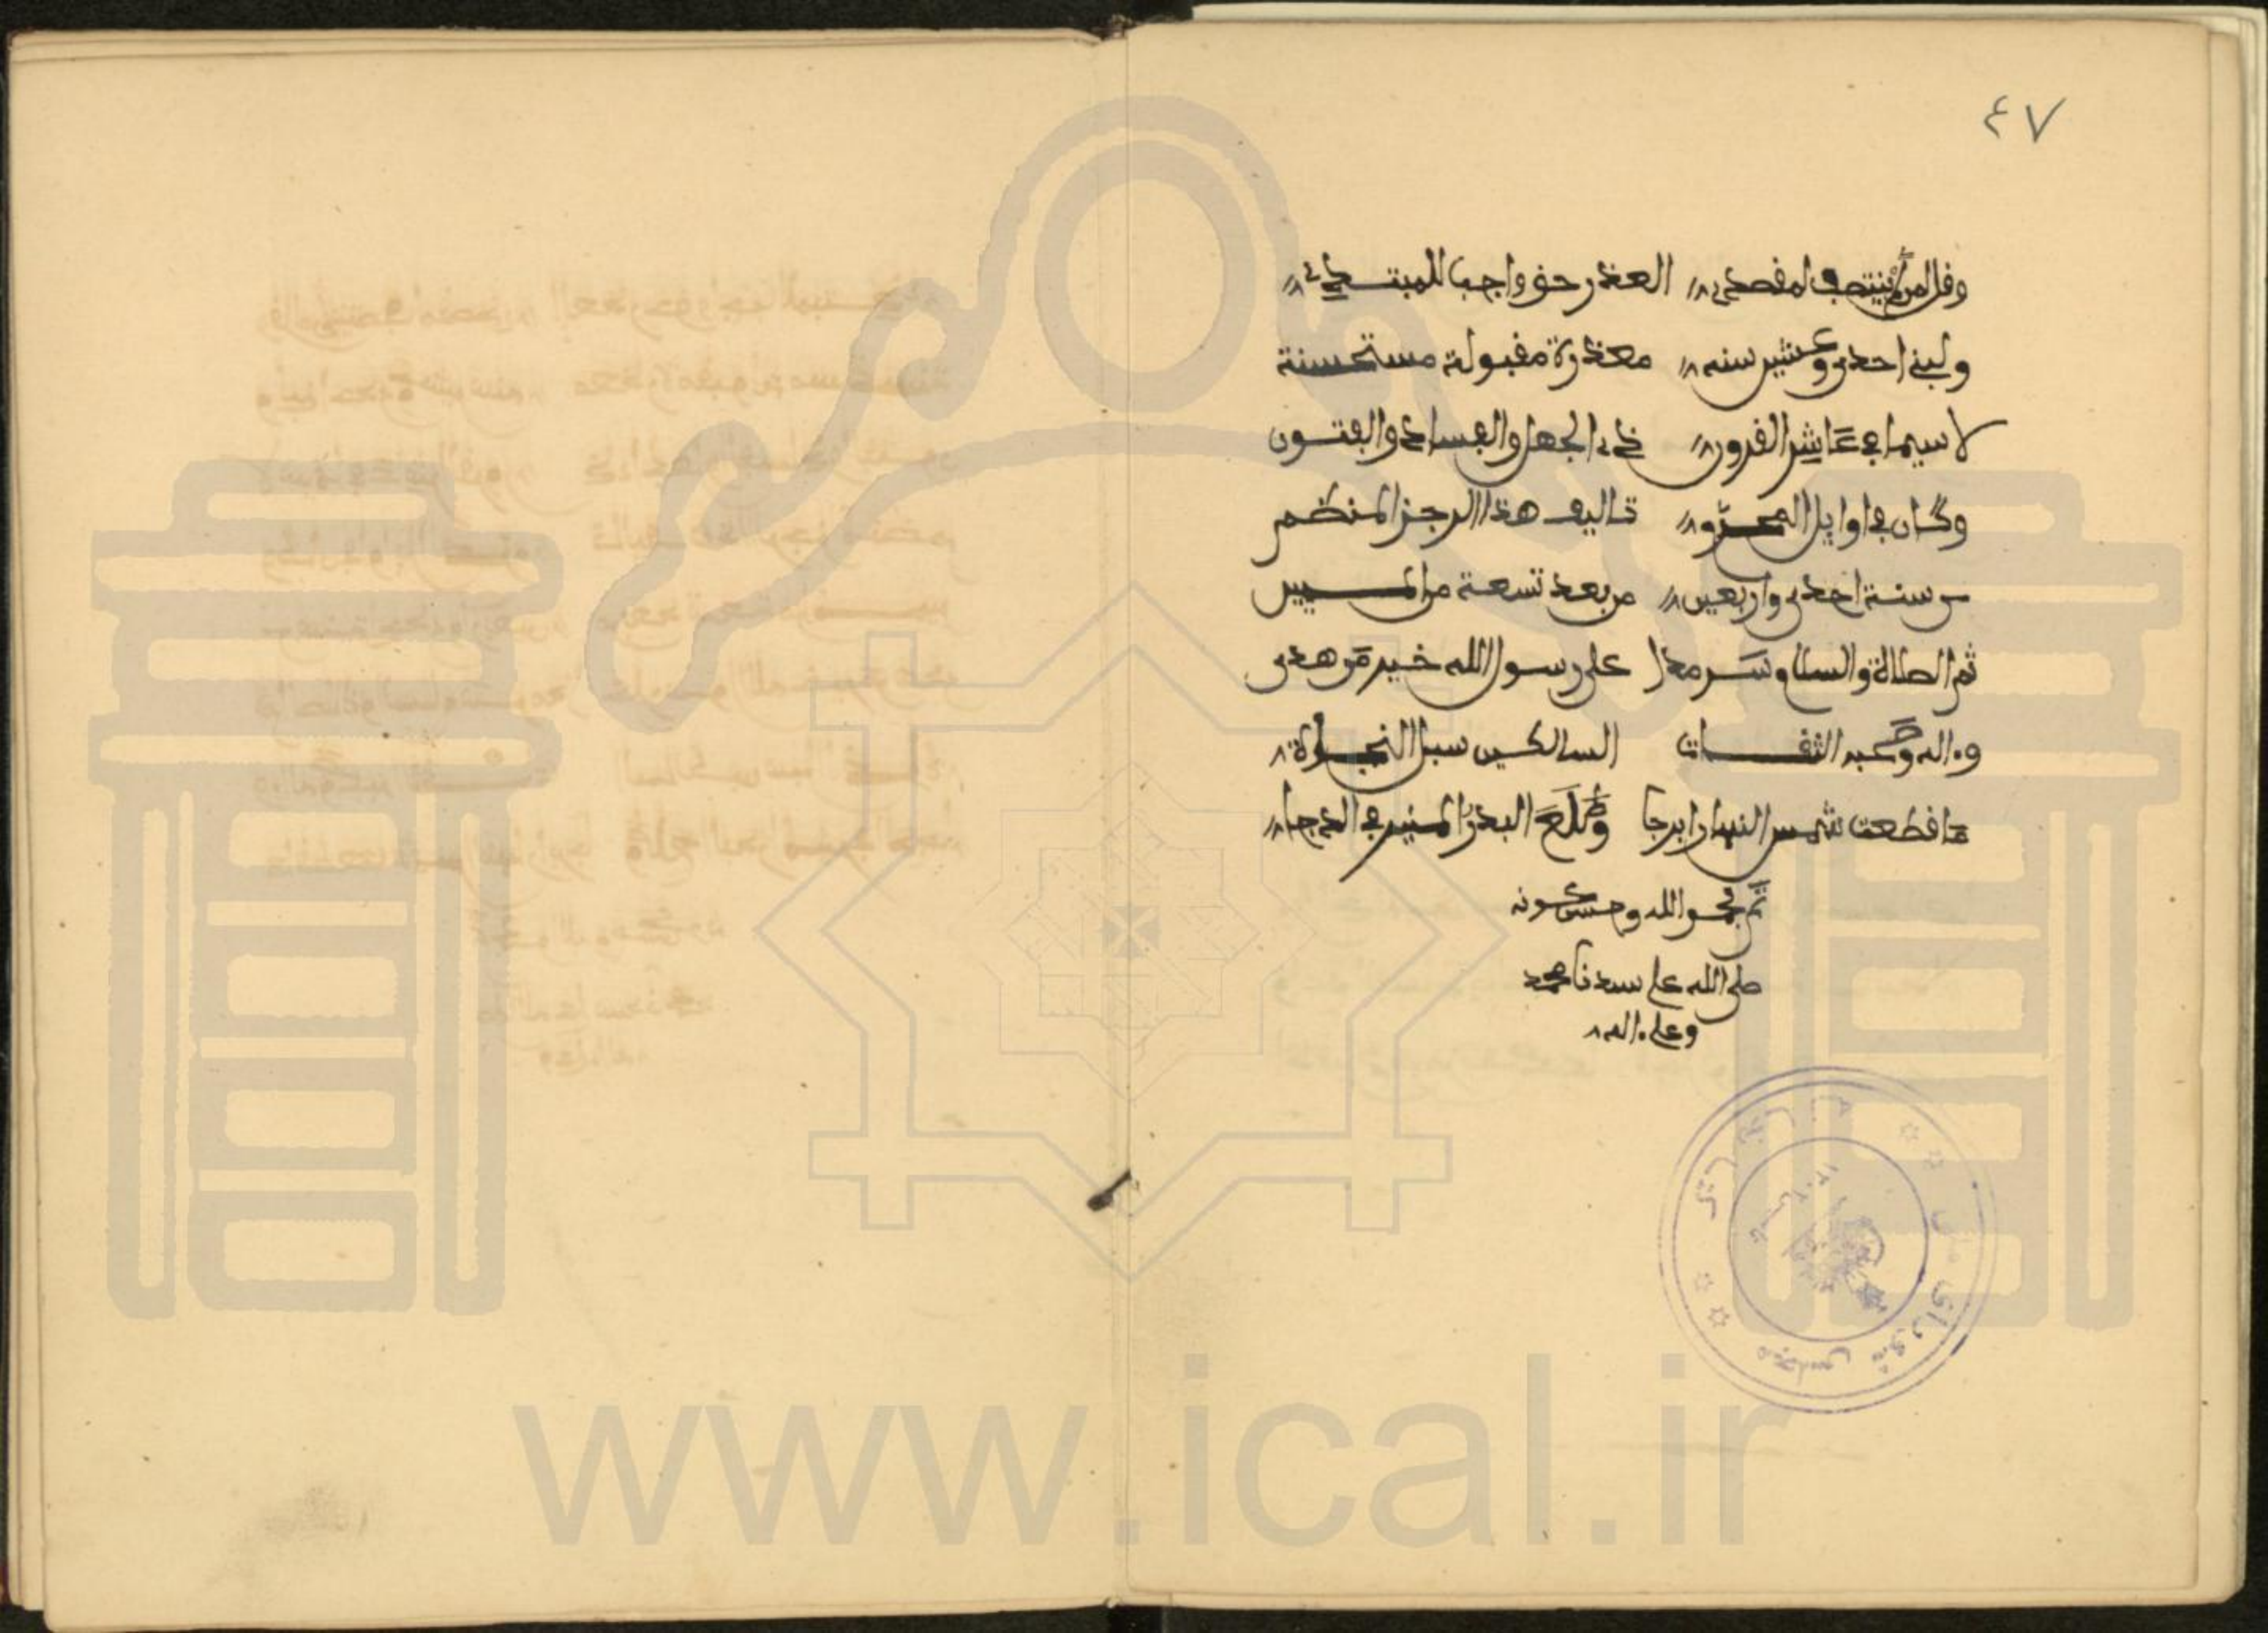 ٤٧
وقل لمن لم ينتصف لمقصدي العذر حق واجب للمبتدي
ولبني احدى وعشرين سنه معذرة مقبولة مستحسنة
لا سيما في عاشر القرون ذي الجهل والفساد والفتون
وكان في اوايل المحرم تاليف هذا الرجز المنظم
من سنة احدى واربعين من بعد تسعة من المييين
ثم الصلاة والسلام سرمدا على رسول الله خير من هدى
وءاله وصحبه الثقات السالكين سبل النجاة
ما قطعت شمس النهار ابرجا وطلع البدر المنير في الدجا
تم بحمد الله وحسن عونه
صلى الله على سيدنا محمد
وعلى ءاله
مجلس شورای
www.ical.ir